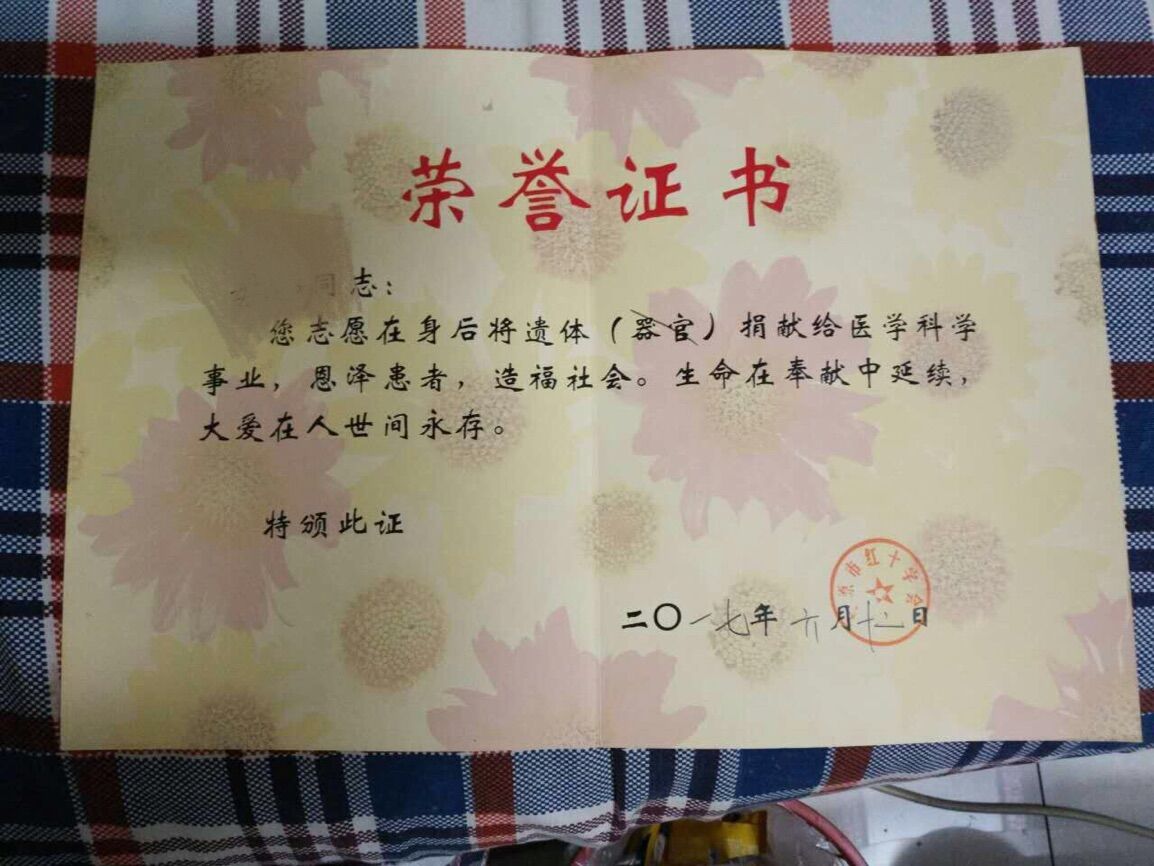 荣誉证书
同志：
您志愿在身后将遗体（器官）捐献给医学科学
事业，恩泽患者，造福社会。生命在奉献中延续，
大爱在人世间永存。
特颁此证
京市红十字会
二〇一七年六月十二日